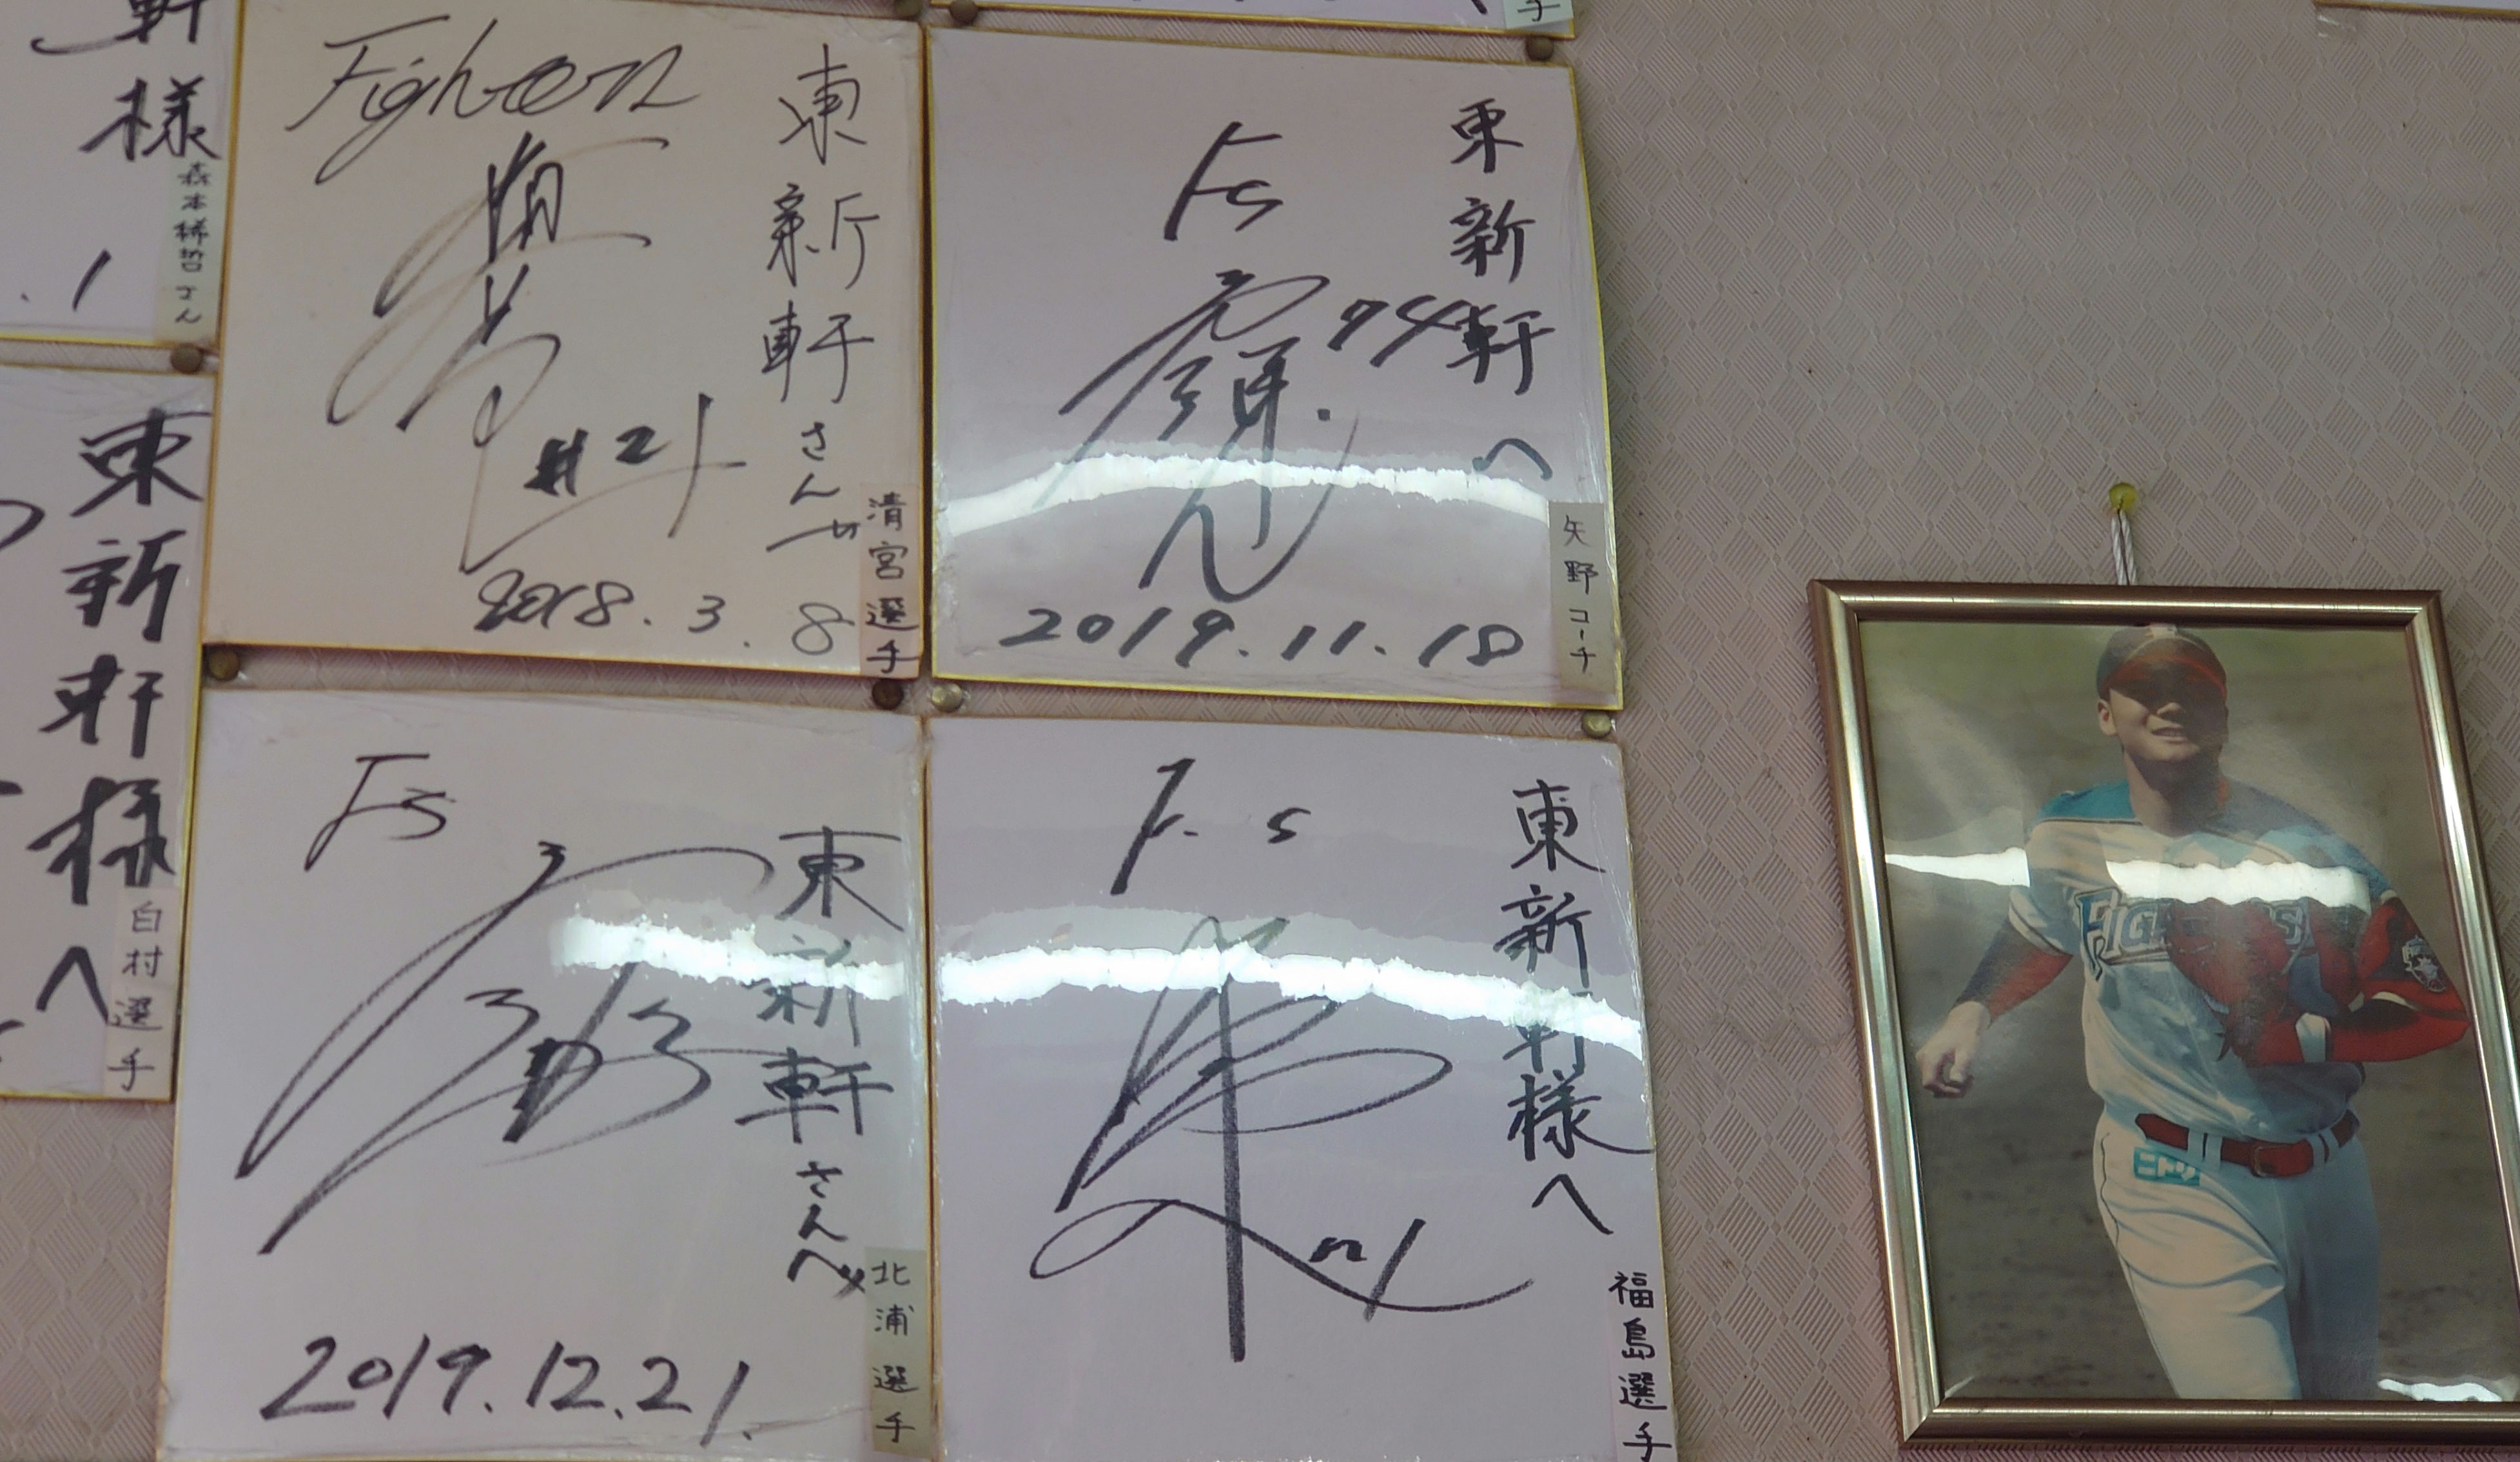 軒様
森本稀哲さん
.1
東新軒様へ
白村選手
Fighters
東新軒さんへ
#21
2018.3.8
清宮選手
Fs
東新軒へ
74
2019.11.18
矢野コーチ
Fs
東新軒さんへ
2019.12.21.
北浦選手
F.s
東新軒様へ
福島選手
手
FIGHTERS
ニトリ